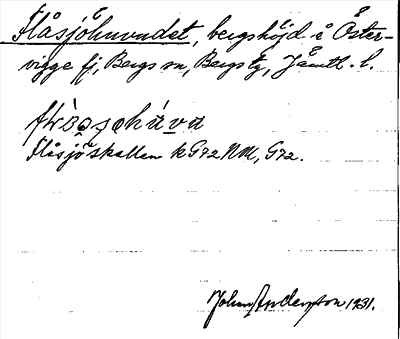 Flåsjöhuvudet, bergshöjd i Öster-
vigge fj, Bergs sn, Bergs tg, Jämtl. l.
Flåsjöskallen k G72 NM, G72.
John Anderson 1931.